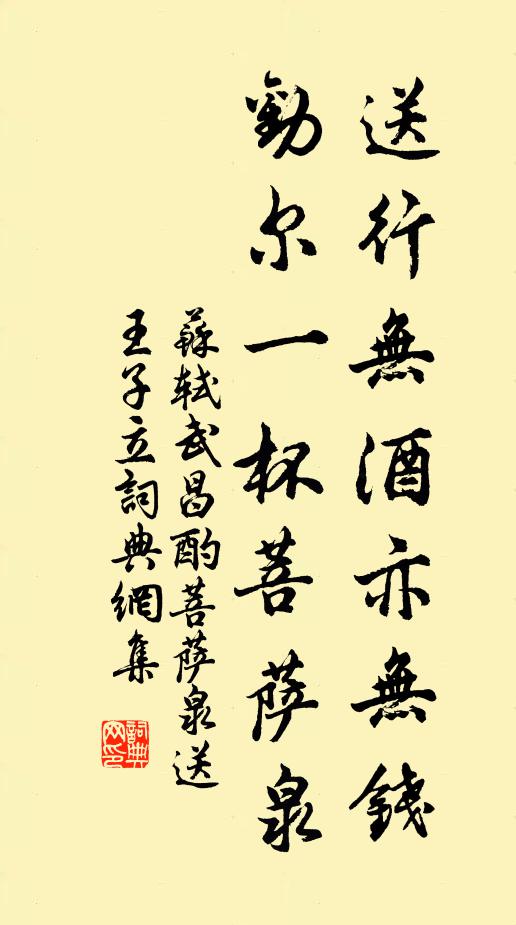 送行無酒亦無錢
勸尔一杯菩薩泉
蘇軾武昌酌菩薩泉送
王子立詞典網集
詞典